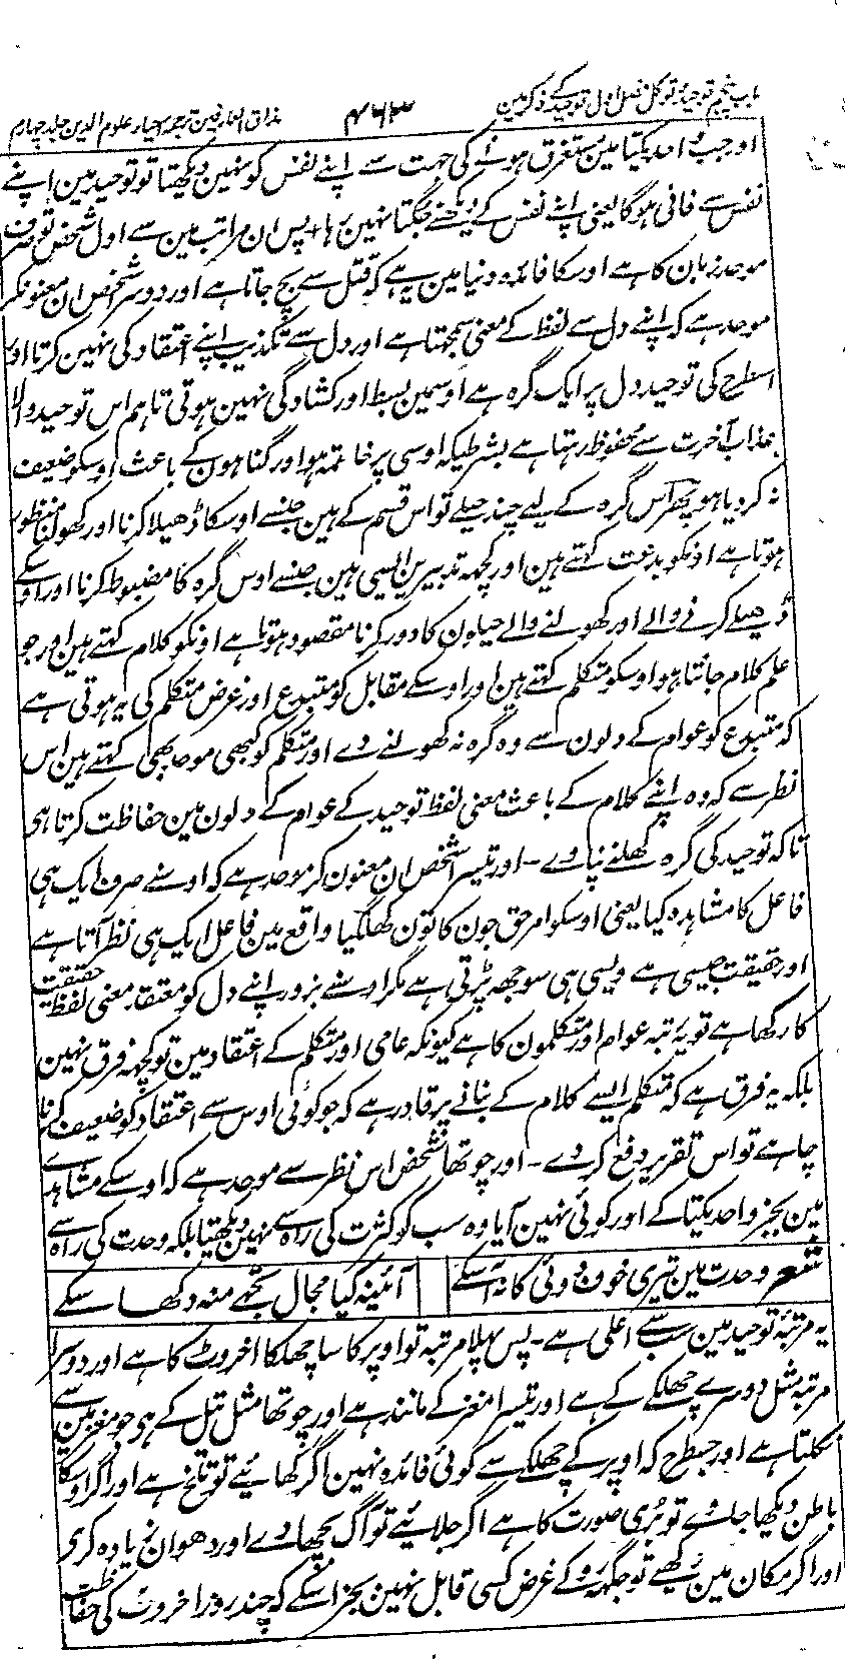 باب پنجم توحید و توکل فصل اول توحید کے ذکر مین ۴۶۳ مذاق العارفین ترجمہ احیاء علوم الدین جلد چہارم
اور جب واحد یکتا مین مستغرق ہونے کی جہت سے اپنے نفس کو نہین دیکھتا تو توحید مین اپنے
نفس سے فانی ہوگا یعنی اپنے نفس کے دیکھنے جگتا نہین رہا پس ان مراتب مین سے اول شخص تو صرف
موحد زبان کا ہے اوسکا فائدہ دنیا مین یہ ہے کہ قتل سے بچ جاتا ہے اور دوسرا شخص ان معنونکر
موحد ہے کہ اپنے دل سے لفظ کے معنی سمجھتا ہے اور دل سے تکذیب اپنے اعتقاد کی نہین کرتا اور
اسطرح کی توحید دل پر ایک گرہ ہے اوسمین بسط اور کشادگی نہین ہوتی تاہم اس توحید والا
عذاب آخرت سے محفوظ رہتا ہے بشرطیکہ اوسی پر خاتمہ ہو اور گناہون کے باعث اوسکو ضعیف
نہ کر دیا ہو پھر اس گرہ کے لیے چند حیلے تو اس قسم کے ہین جنسے اوسکا ڈھیلا کرنا اور کھولنا منظور
ہوتا ہے اونکو بدعت کہتے ہین اور کچھ تدبیرین ایسی ہین جنسے اوس گرہ کا مضبوط کرنا اور اوسکے
ڈھیلے کرنے والے اور کھولنے والے حیلون کا دور کرنا مقصود ہوتا ہے اونکو کلام کہتے ہین اور جو
علم کلام جانتا ہو اوسکو متکلم کہتے ہین اور اوسکے مقابل کو مبتدع اور غرض متکلم کی یہ ہوتی ہے
کہ مبتدع کو عوام کے دلون سے وہ گرہ نہ کھولنے دے اور متکلم کو کبھی موحد بھی کہتے ہین اس
نظر سے کہ وہ اپنے کلام کے باعث معنی لفظ توحید کے عوام کے دلون مین حفاظت کرتا ہی
تاکہ توحید کی گرہ کھلنے نپاوے - اور تیسرا شخص ان معنون کر موحد ہے کہ اوسنے صرف ایک ہی
فاعل کا مشاہدہ کیا یعنی اوسکو امر حق جون کا تون کھلگیا واقع مین فاعل ایک ہی نظر آتا ہے
اور حقیقت جیسی ہے ویسی ہی سوجھ پڑتی ہے مگر اوسنے بزور اپنے دل کو معتقد معنی لفظ حقیقت
کا رکھا ہے تو یہ رتبہ عوام اور متکلمون کا ہے کیونکہ عامی اور متکلم کے اعتقاد مین تو کچھ فرق نہین
بلکہ یہ فرق ہے کہ متکلم ایسے کلام کے بنانے پر قادر ہے کہ جو کوئی اوس سے اعتقاد کو ضعیف کرنا
چاہے تو اس تقریر دفع کر دے - اور چوتھا شخص اس نظر سے موحد ہے کہ اوسکے مشاہدے
مین بجز واحد یکتا کے اور کوئی نہین آیا وہ سب کو کثرت کی راہ سے نہین دیکھتا بلکہ وحدت کی راہ سے
شعر وحدت مین تیری حرف دوئی کا نہ آسکے آئینہ کیا مجال تجھے منہ دکھا سکے
یہ مرتبہ توحید مین سب سے اعلی ہے - پس پہلا مرتبہ تو اوپر کا سا چھلکا اخروٹ کا ہے اور دوسرا
مرتبہ مثل دوسرے چھلکے کے ہے اور تیسرا مغز کے مانند ہے اور چوتھا مثل تیل کے ہی جو مغز مین سے
نکلتا ہے اور جسطرح کہ اوپر کے چھلکے سے کوئی فائدہ نہین اگر کھائیے تو تلخ ہے اور اگر اوسکا
باطن دیکھا جاوے تو بری صورت کا ہے اگر جلائیے تو آگ بجھاوے اور دھوان زیادہ کری
اور اگر مکان مین رکھیے تو جگہ روکے غرض کسی قابل نہین بجز اسکے کہ چند روز اخروٹ کی حفاظت